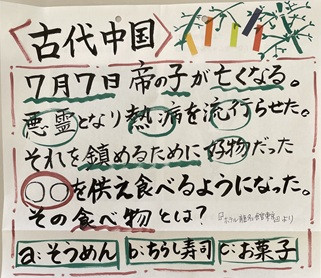 〈古代中国〉
7月7日帝の子が亡くなる。
悪霊となり熱病を流行らせた。
それを鎮めるために好物だった
○○を供え食べるようになった。
その食べ物とは?
a:そうめん b:ちらし寿司 c:お菓子